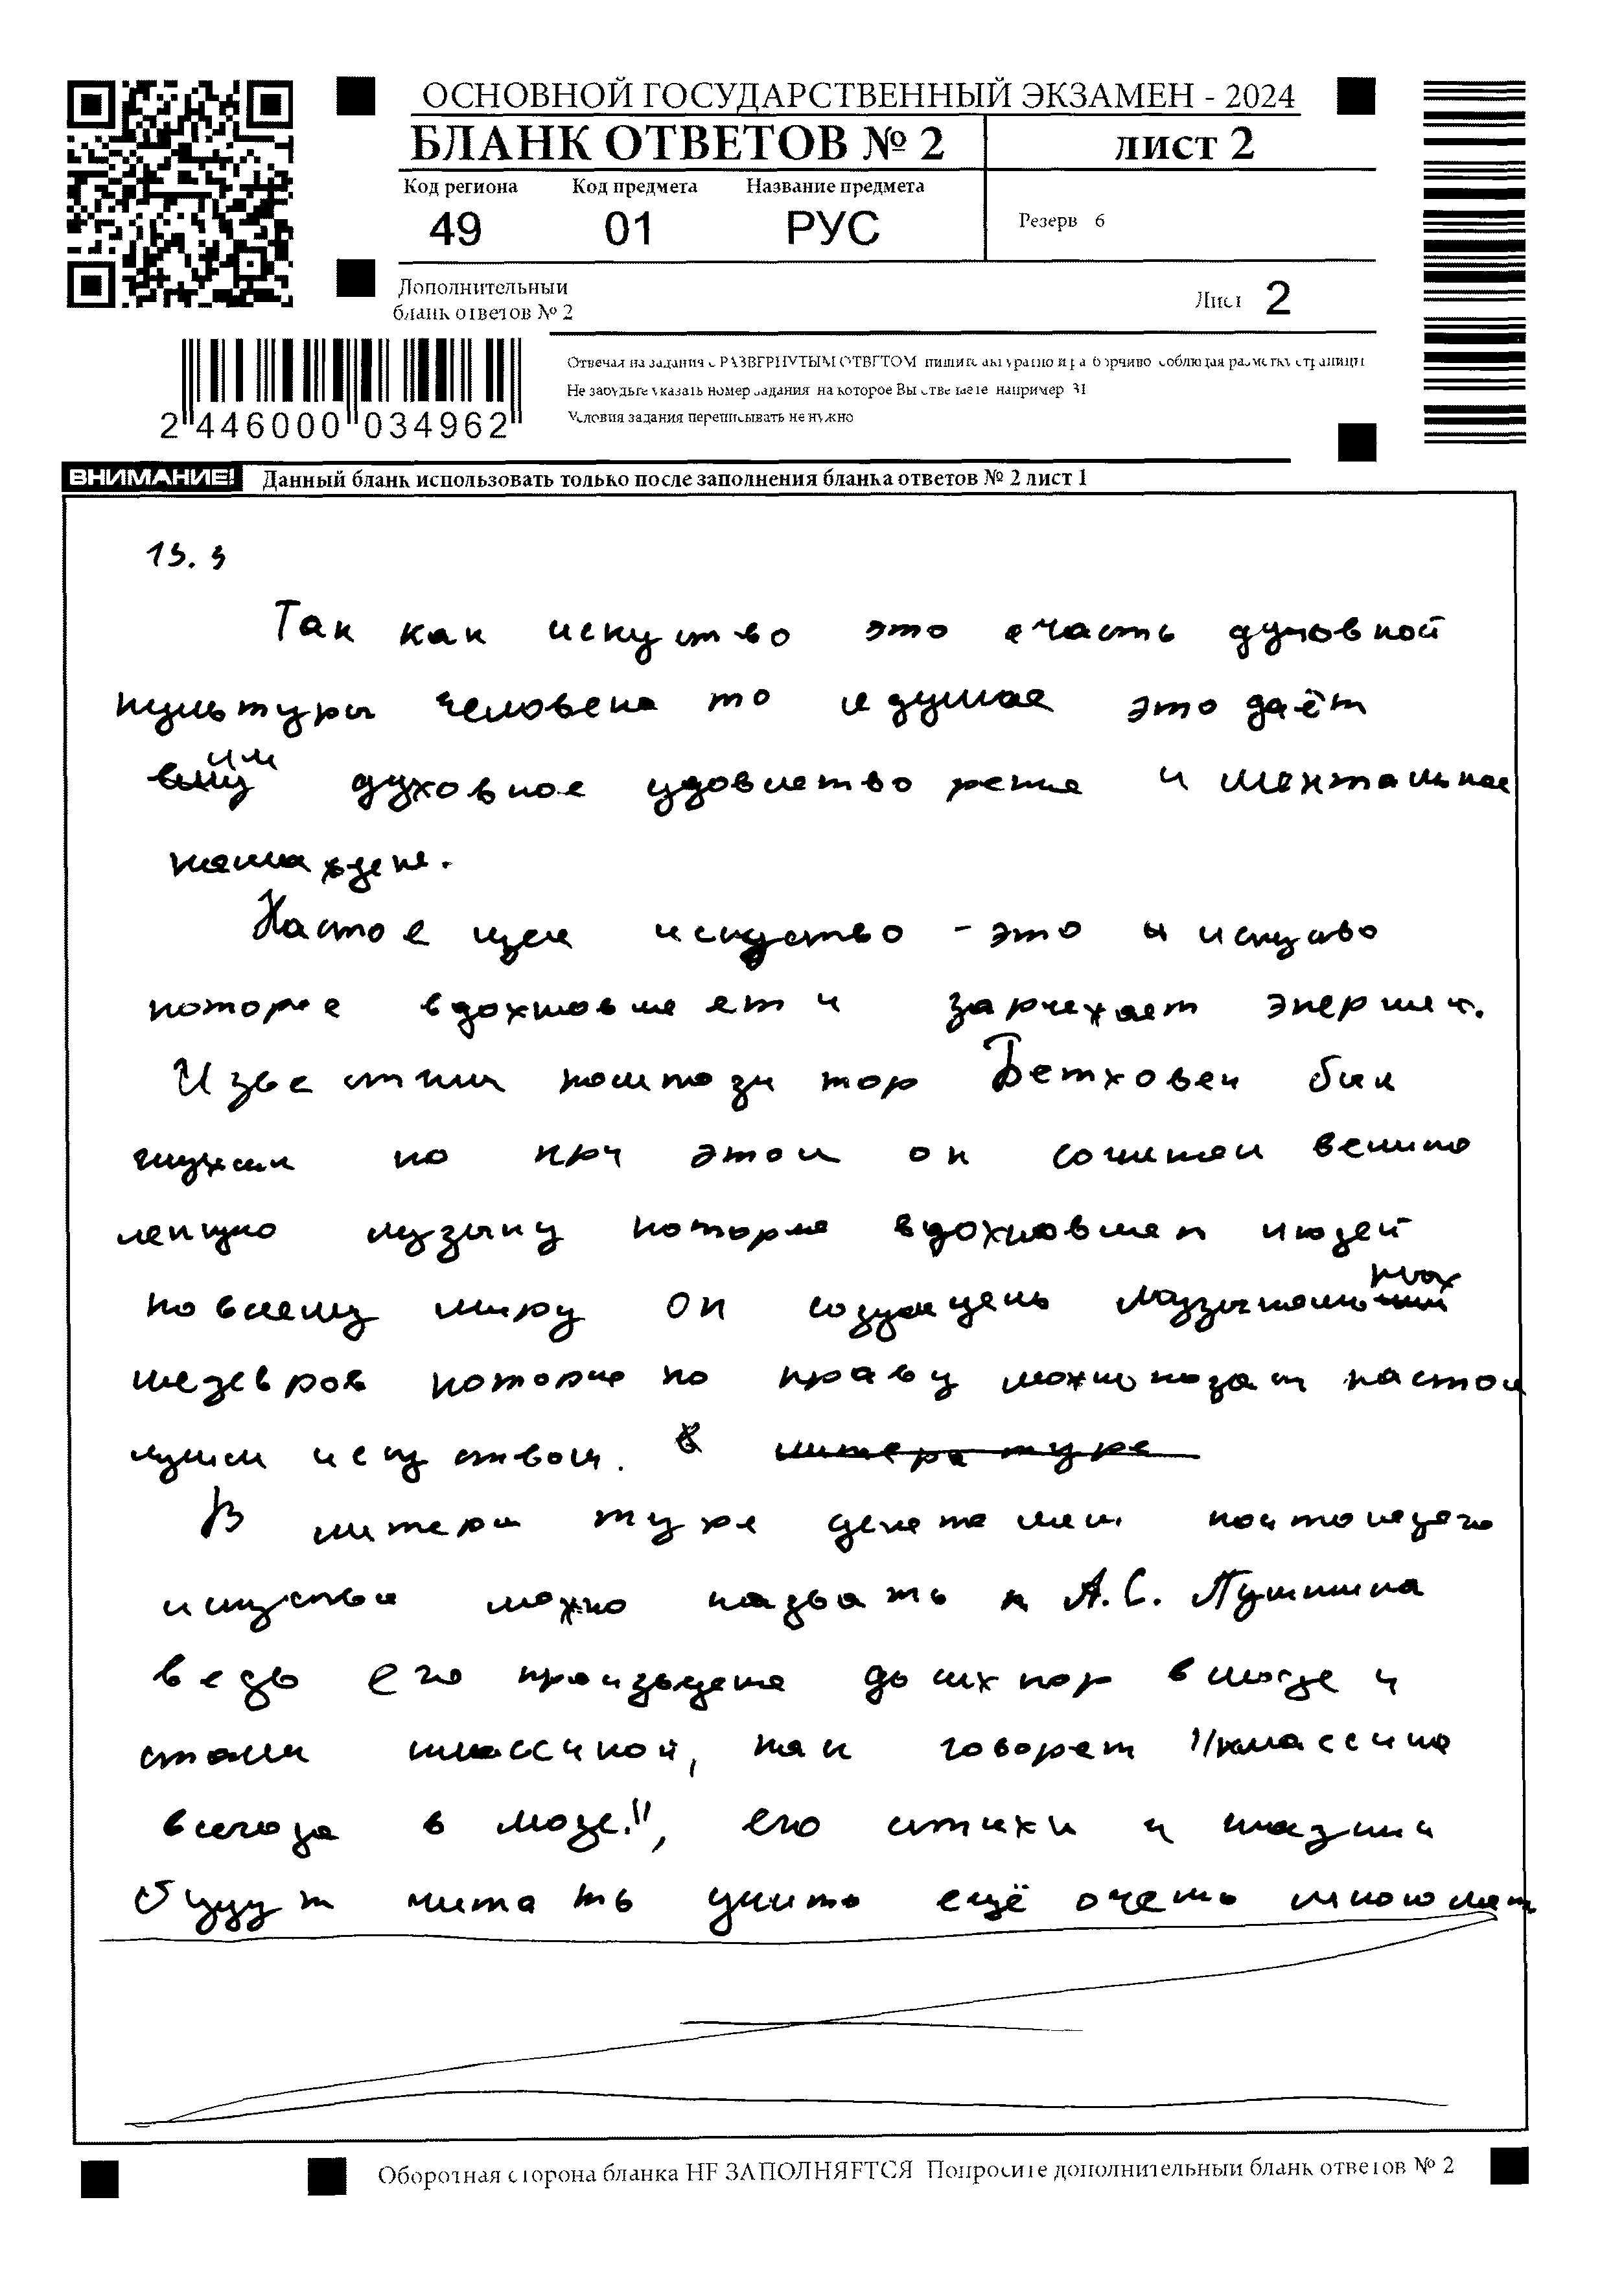 ОСНОВНОЙ ГОСУДАРСТВЕННЫЙ ЭКЗАМЕН - 2024
БЛАНК ОТВЕТОВ № 2 лист 2
Код региона Код предмета Название предмета
49 01 РУС Резерв 6
Дополнительный
бланк ответов № 2 Лист 2
Отвечая на задания с РАЗВЕРНУТЫМ ОТВЕТОМ пишите аккуратно и разборчиво соблюдая разметку страницы
Не забудьте указать номер задания на которое Вы отвечаете например 31
Условия задания переписывать не нужно
2 446000 034962
ВНИМАНИЕ! Данный бланк использовать только после заполнения бланка ответов № 2 лист 1
13.3
Так как искуство это часть духовной
культуры человека то я думае это даёт
им духовное удовлетворение и ментальное
Настоещее искуство - это искуство
которое вдохновляет и заряжает энергией.
Известний композитор Бетховен бил
глухим но при этом он сочинял велико
лепную музыку которая вдохновляет людей
по всему миру ОН музыкальных
шедевров которие по праву настоя
щим искуством.
В литературе деятелем настоящего
искуства можно назвать А.С. Пушкина
ведь его до сих пор в моде и
стали классикой, как говорет "классика
всегда в моде!", его стихи и
будут читать ещё очень много лет
Оборотная сторона бланка НЕ ЗАПОЛНЯЕТСЯ Попросите дополнительный бланк ответов № 2